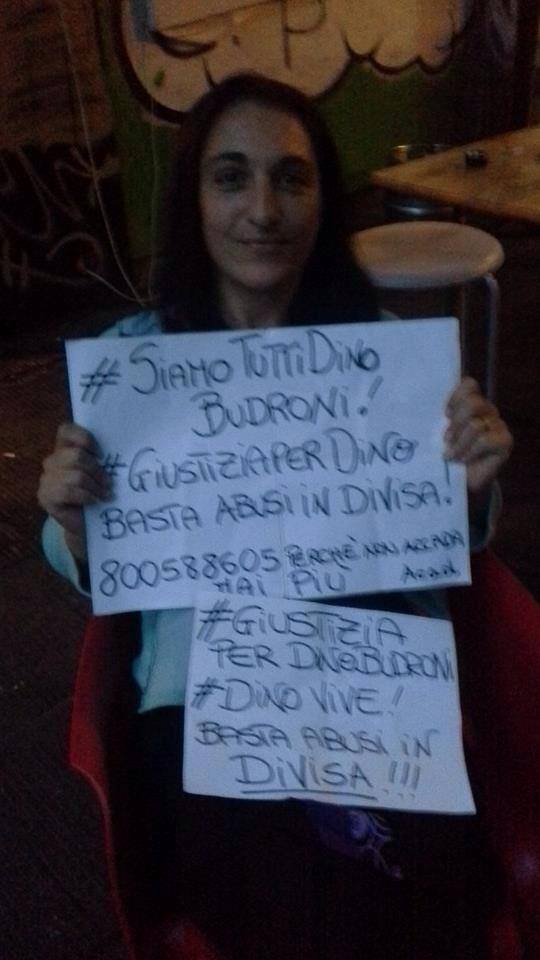 #SIAMO TUTTI DINO
BUDRONI!
#GIUSTIZIAPERDINO
BASTA ABUSI IN DIVISA!
800588605 PERCHÈ NON ACCADA
MAI PIÙ A.c.a.d.
#GIUSTIZIA
PER DINOBUDRONI
#DINO VIVE!
BASTA ABUSI IN
DIVISA!!!